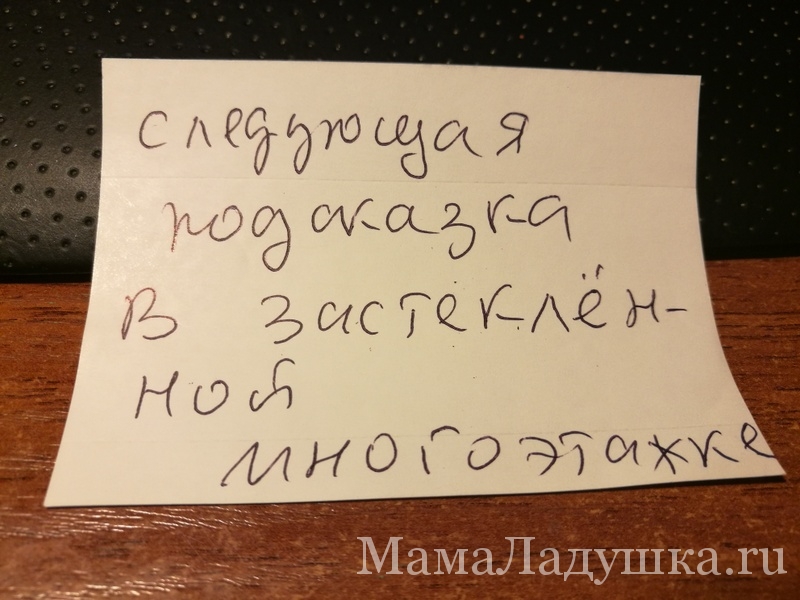 следующая
подсказка
в застеклён-
ной
многоэтажке
МамаЛадушка.ru